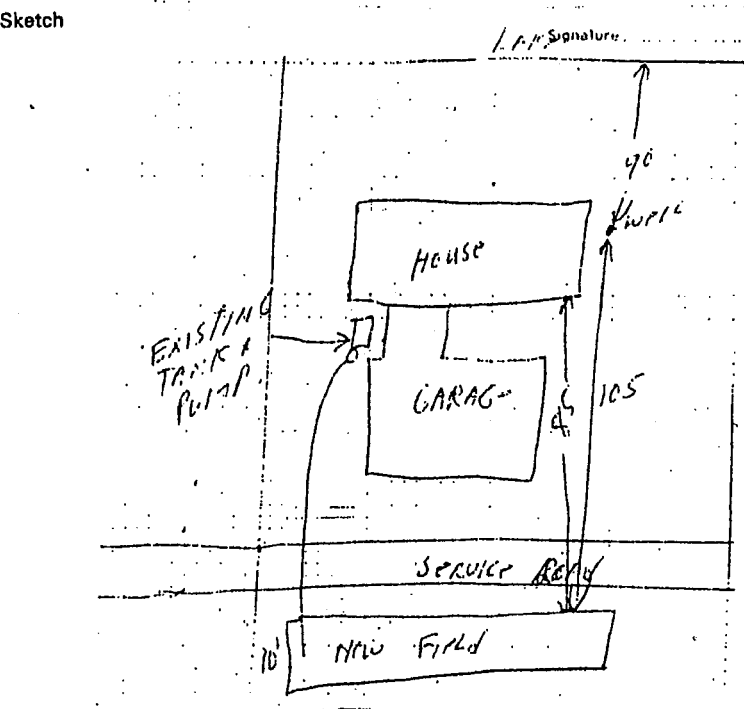 Sketch
Signature
90
well
House
EXISTING
TANK &
PUMP
GARAGE
105
SERVICE ROAD
10'
NEW FIELD